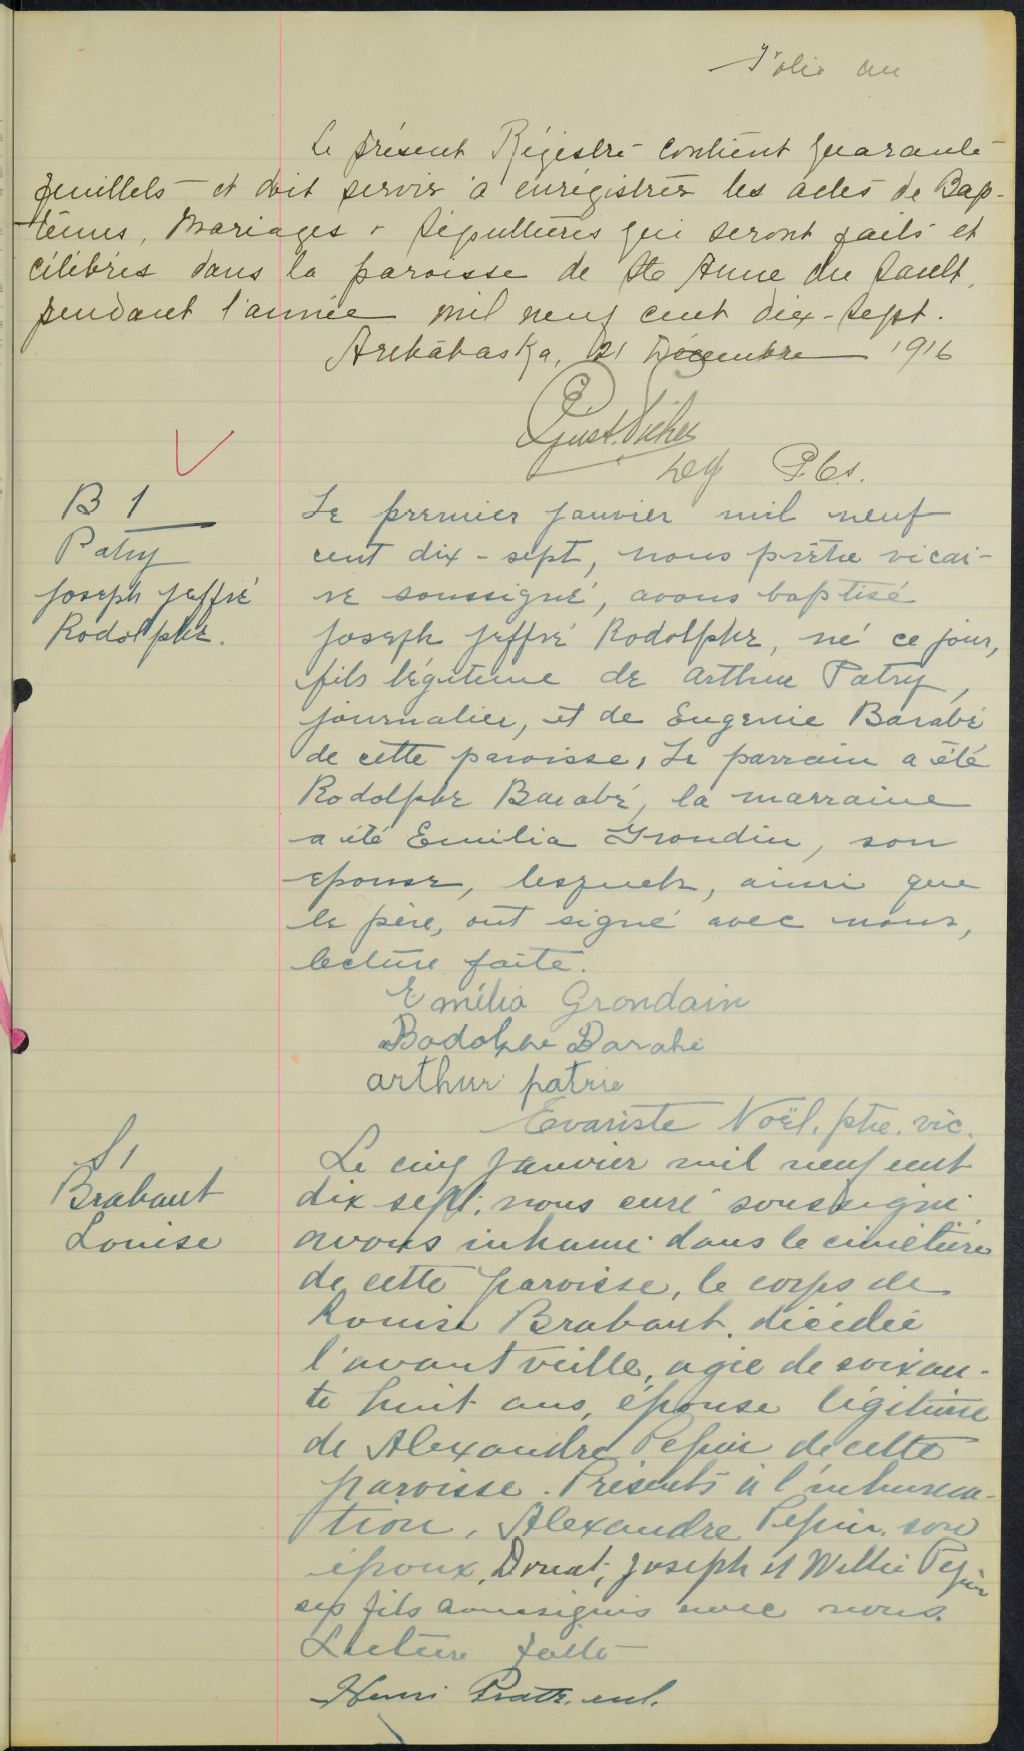 Folio un
Le présent Régistre contient quarante
feuillets et doit servir à enrégistrer les actes de Bap-
têmes, Mariages & Sépultures qui seront faits et
célébrés dans la paroisse de Ste Anne du Sault,
pendant l'année mil neuf cent dix-sept.
Arthabaska, 21 Décembre 1916
P.C.S.
B 1
Patry
Joseph Jeffré
Rodolphe.
Le premier janvier mil neuf
cent dix-sept, nous prêtre vicai-
re soussigné, avons baptisé
Joseph Jeffré Rodolphe, né ce jour,
fils légitime de Arthur Patry,
journalier, et de Eugenie Barabé
de cette paroisse, Le parrain a été
Rodolphe Barabé, la marraine
a été Emilia Grondin, son
epouse, lesquels, ainsi que
le père, ont signé avec nous,
lecture faite.
Emélia Grondain
Rodolphe Barabe
arthur patrie
Evariste Noël. ptre. vic.
S 1
Brabant
Louise
Le cinq Janvier mil neuf cent
dix sept, nous curé soussigné
avons inhumé dans le cimétière
de cette paroisse, le corps de
Louise Brabant, décédée
l'avant veille, agée de soixan-
te huit ans, épouse légitime
de Alexandre Pepin de cette
paroisse. Présents à l'inhuma-
tion, Alexandre Pepin, son
époux, Donat, Joseph et Willie Pepin
ses fils soussignés avec nous.
Lecture faite
Henri